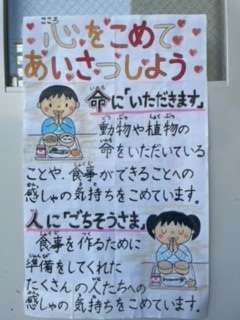 こころ
心をこめて
あいさつしよう
命に「いただきます」
動物や植物の
命をいただいている
ことや、食事ができることへの
感しゃの気持ちをこめています。
人に「ごちそうさま」
食事を作るために
準備をしてくれた
たくさんの人たちへの
感しゃの気持ちをこめています。